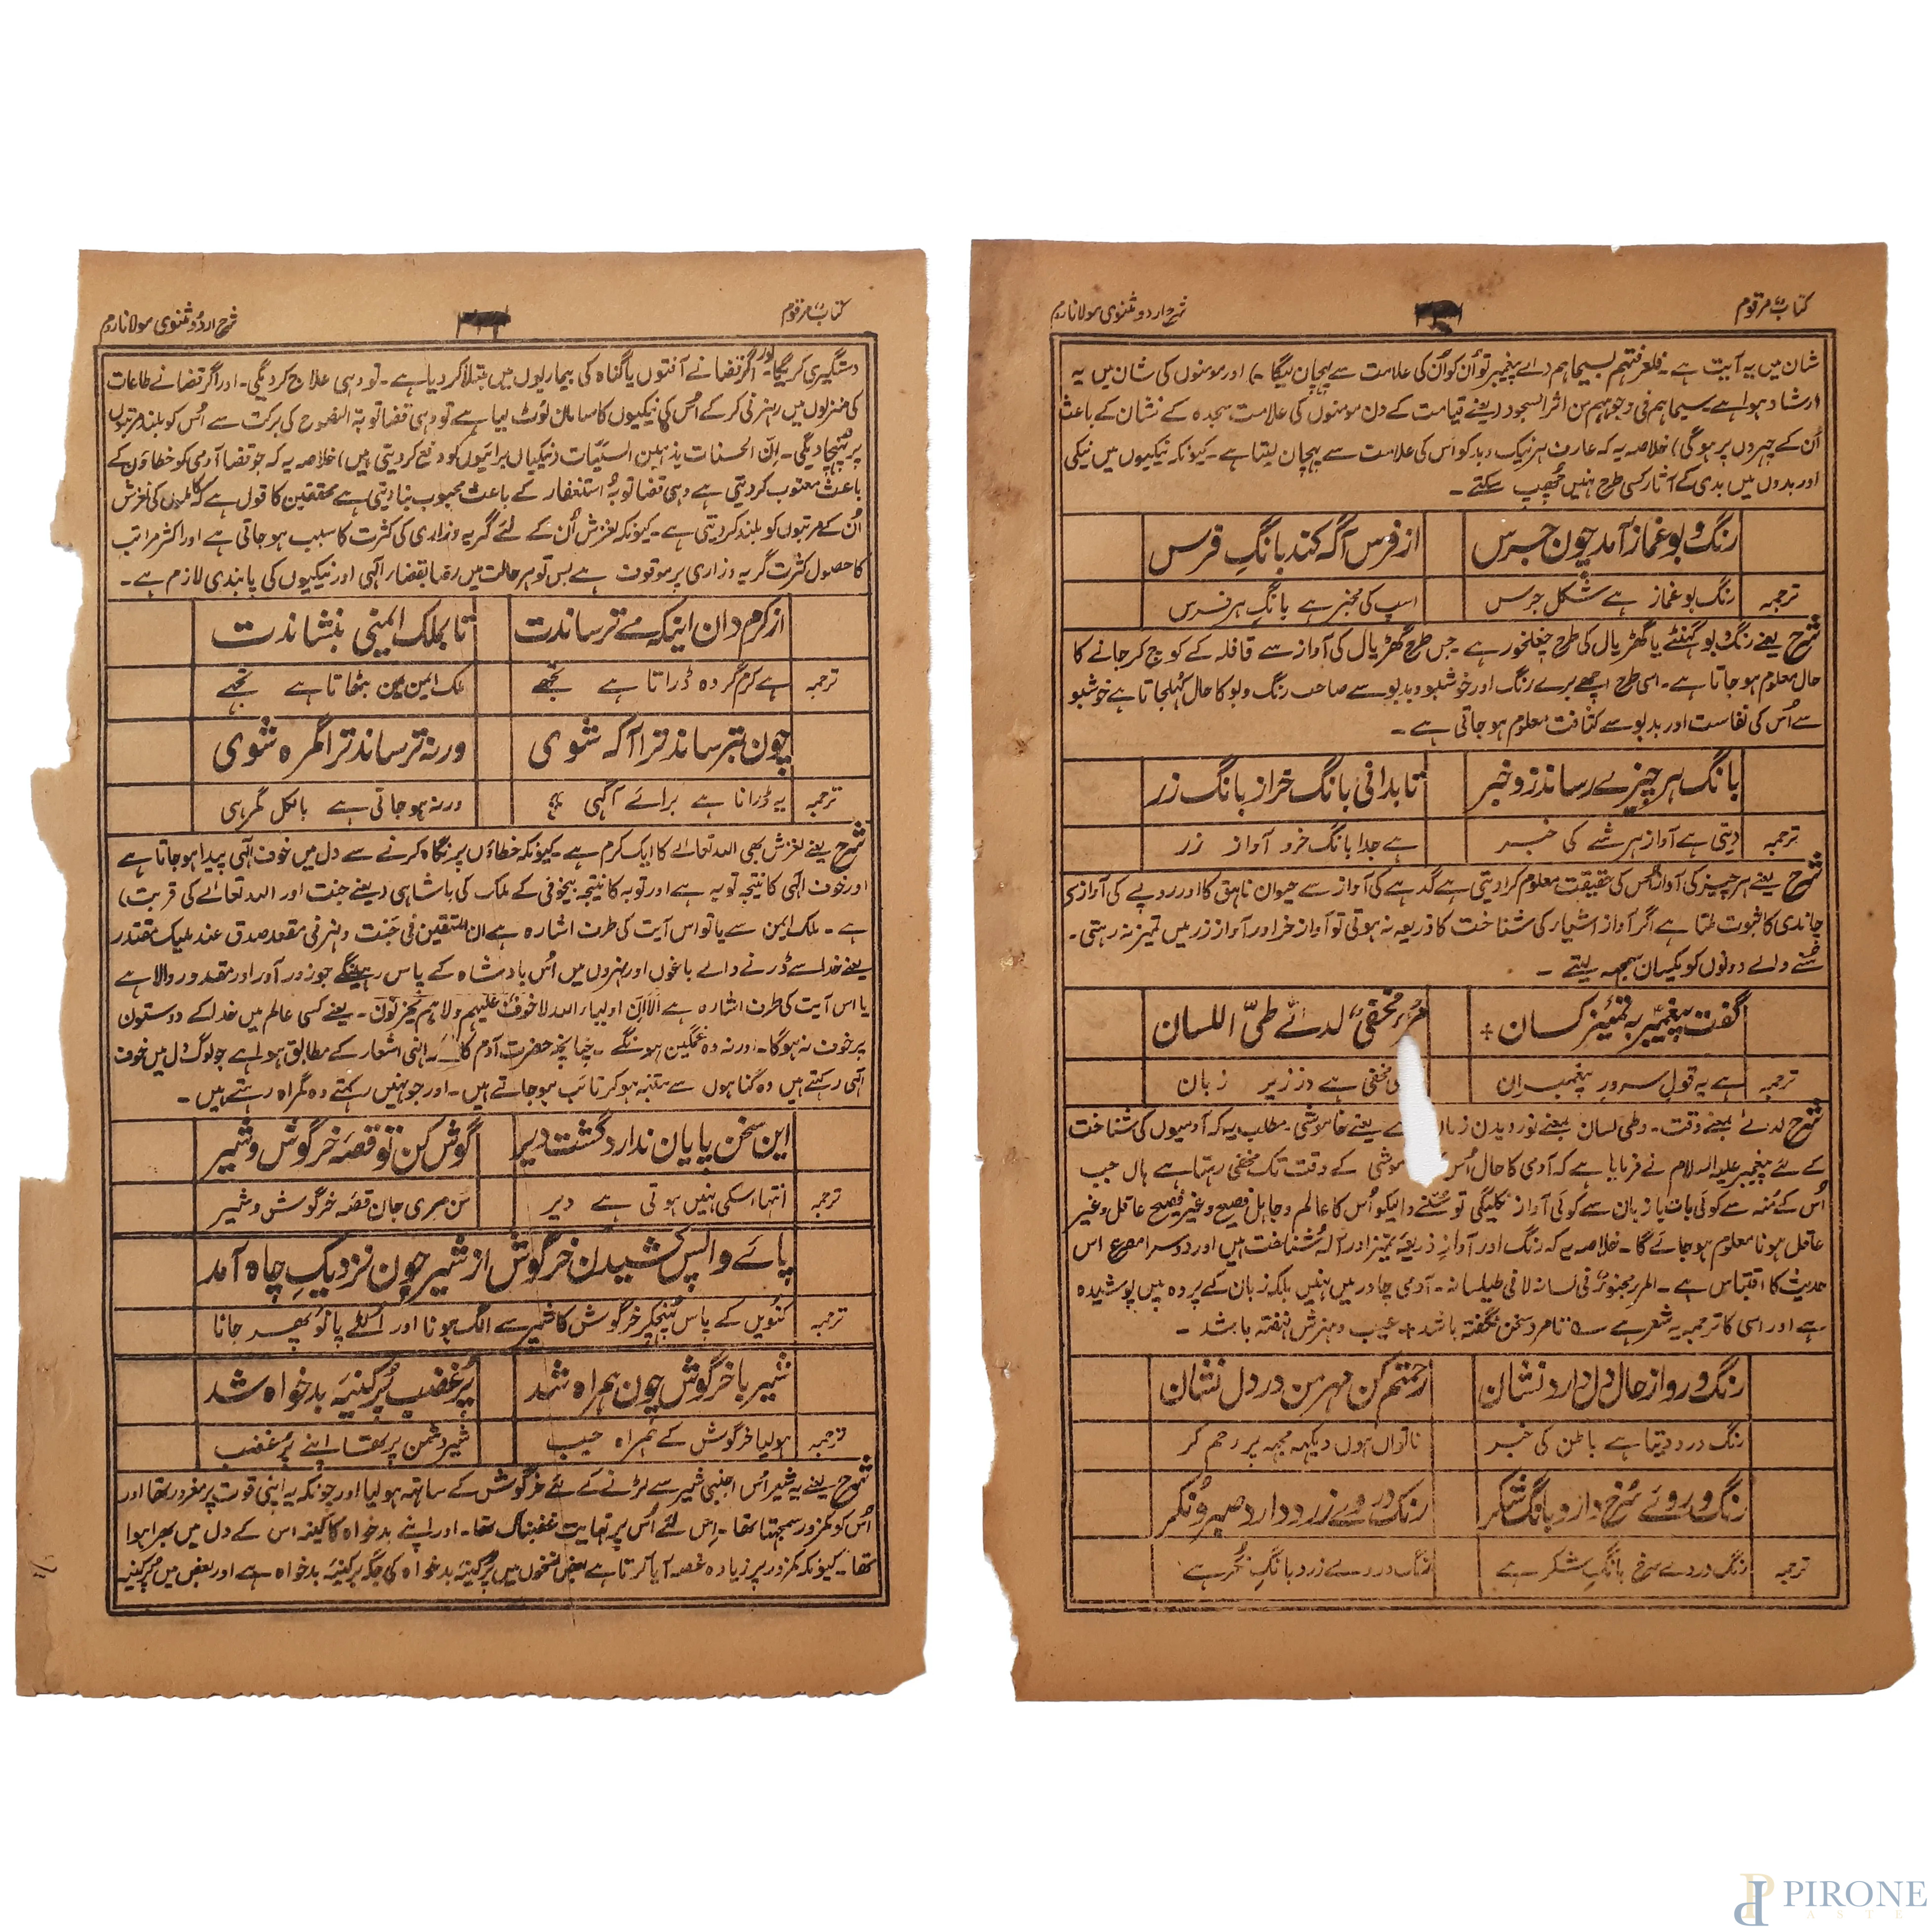 کتاب مرقوم
شرح اردو مثنوی مولانا روم
دستگیری کریگی اور اگر قضا نے آفتوں یا گناہ کی بیماریوں میں مبتلا کر دیا ہے۔ تو وہی علاج کر دیگی۔ اور اگر قضا نے طاعات
کی منزلوں میں رہزنی کر کے اُس کی نیکیوں کا سامان لوٹ لیا ہے تو وہی قضا توبۃ النصوح کی برکت سے اُس کو بلند مرتبوں
پر پہنچا دیگی۔ اِنّ الحسنات یذہبن السیّئات (نیکیاں برائیوں کو دفع کر دیتی ہیں) خلاصہ یہ کہ جو قضا آدمی کو خطاؤں کے
باعث معتوب کر دیتی ہے وہی قضا توبہ و استغفار کے باعث محبوب بنا دیتی ہے محققین کا قول ہے کہ کاملوں کی لغزش
اُن کے مرتبوں کو بلند کر دیتی ہے۔ کیونکہ لغزش اُن کے لئے گریہ و زاری کی کثرت کا سبب ہو جاتی ہے اور اکثر مراتب
کا حصول کثرت گریہ و زاری پر موقوف ہے بس تو ہر حالت میں رضا بقضاء الٰہی اور نیکیوں کی پابندی لازم ہے۔
از کرم دان اینکہ مے ترساندت تا بملک ایمنی بنشاندت
ترجمہ ہے کرم گر وہ ڈراتا ہے تجھے ملک ایمن میں بٹھاتا ہے تجھے
چون بترساند ترا آگہ شوی ورنہ ترساند ترا گمرہ شوی
ترجمہ یہ ڈرانا ہے برائے آگہی ورنہ ہو جاتی ہے بالکل گمرہی
شرح یعنے لغزش بھی اللہ تعالےٰ کا ایک کرم ہے۔ کیونکہ خطاؤں پر نگاہ کرنے سے دل میں خوف الٰہی پیدا ہو جاتا ہے
اور خوف الٰہی کا نتیجہ توبہ ہے اور توبہ کا نتیجہ بیخوفی کے ملک کی بادشاہی (یعنے جنت اور اللہ تعالےٰ کی قربت)
ہے۔ ملک ایمن سے یا تو اس آیت کی طرف اشارہ ہے ان المتقین فی جنت و نہر فی مقعد صدق عند ملیک مقتدر
یعنے خدا سے ڈرنے والے باغوں اور نہروں میں اُس بادشاہ کے پاس رہینگے جو زور آور اور مقدور والا ہے
یا اس آیت کی طرف اشارہ ہے الا اِنّ اولیاء اللہ لا خوف علیہم ولا ہم یحزنون۔ یعنے کسی عالم میں خدا کے دوستوں
پر خوف نہ ہوگا۔ اور نہ وہ غمگین ہونگے۔ چنانچہ حضرت آدم کا انہی اشعار کے مطابق ہوا ہے جو لوگ دل میں خوف
الٰہی رکھتے ہیں وہ گناہوں سے متنبہ ہو کر تائب ہو جاتے ہیں۔ اور جو نہیں رکھتے وہ گمراہ رہتے ہیں۔
این سخن پایان ندارد گشت دیر گوش کن تو قصۂ خرگوش و شیر
ترجمہ انتہا اسکی نہیں ہوتی ہے دیر سن مری جان قصۂ خرگوش و شیر
پائے واپس کشیدن خرگوش از شیر چون نزدیکِ چاہ آمد
ترجمہ کنویں کے پاس پہنچکر خرگوش کا شیر سے الگ ہونا اور اُلٹے پانو پھر جانا
شیر با خرگوش چون ہمراہ شد پُر غضب پُر کینہ بدخواہ شد
ترجمہ ہو لیا خرگوش کے ہمراہ جب شیر دشمن پر تھا اپنے پُر غضب
شرح یعنے یہ شیر اُس اجنبی شیر سے لڑنے کے لئے خرگوش کے ساتھ ہو لیا اور چونکہ یہ اپنی قوت پر مغرور تھا اور
اُس کو کمزور سمجھتا تھا۔ اِس لئے اُس پر نہایت غضبناک تھا۔ اور اپنے بدخواہ کا کینہ اس کے دل میں بھرا ہوا
تھا۔ کیونکہ کمزور پر زیادہ غصہ آیا کرتا ہے بعض نسخوں میں پُر کینہ بدخواہ کی جگہ پر کینۂ بدخواہ ہے اور بعض میں پُر کینہ
کتاب مرقوم
شرح اردو مثنوی مولانا روم
شان میں یہ آیت ہے۔ فلعرفتہم بسیماہم (اے پیغمبر تو اُن کو اُن کی علامت سے پہچان لیگا) اور مومنوں کی شان میں یہ
ارشاد ہوا ہے سیماہم فی وجوہہم من اثر السجود (یعنے قیامت کے دن مومنوں کی علامت سجدہ کے نشان کے باعث
اُن کے چہروں پر ہوگی) خلاصہ یہ کہ عارف ہر نیک و بد کو اُس کی علامت سے پہچان لیتا ہے۔ کیونکہ نیکیوں میں نیکی
اور بدوں میں بدی کے آثار کسی طرح نہیں چُھپ سکتے۔
رنگ و بو غماز آمد چون جرس از فرس آگہ کند بانگِ فرس
ترجمہ رنگ بو غماز ہے شکل جرس اسپ کی مخبر ہے بانگِ ہر فرس
شرح یعنے رنگ و بو گھنٹے یا گھڑیال کی طرح چغلخور ہے۔ جس طرح گھڑیال کی آواز سے قافلہ کے کوچ کر جانے کا
حال معلوم ہو جاتا ہے۔ اسی طرح اچھے برے رنگ اور خوشبو و بدبو سے صاحب رنگ و بو کا حال کُھلجاتا ہے خوشبو
سے اُس کی نفاست اور بدبو سے کثافت معلوم ہو جاتی ہے۔
بانگ ہر چیزے رساند زو خبر تا بدانی بانگ خر از بانگ زر
ترجمہ دیتی ہے آواز ہر شے کی خبر ہے جدا بانگ خر و آواز زر
شرح یعنے ہر چیز کی آواز اُس کی حقیقت معلوم کرا دیتی ہے گدہے کی آواز سے حیوان ناہق کا اور روپے کی آواز کی
چاندی کا ثبوت ملتا ہے اگر آواز اشیاء کی شناخت کا ذریعہ نہ ہوتی تو آواز خر اور آواز زر میں تمیز نہ رہتی۔
سُننے والے دونوں کو یکسان سمجھ لیتے۔
گفت پیغمبر بہ تمیز کسان مرء مخفی لدےٰ طیّ اللسان
ترجمہ ہے یہ قول سرور پیغمبران مخفی ہے در زیر زبان
شرح لدے بمعنے وقت۔ وطی لسان بمعنے نوردیدن زبان یعنے خاموشی۔ مطلب یہ کہ آدمیوں کی شناخت
کے لئے پیغمبر علیہ السلام نے فرمایا ہے کہ آدمی کا حال اُس موشی کے وقت تک مخفی رہتا ہے ہاں جب
اُس کے مُنہ سے کوئی بات یا زبان سے کوئی آواز نکلیگی تو سُننے والیکو اُس کا عالم و جاہل فصیح و غیر فصیح عاقل و غیر
عاقل ہونا معلوم ہو جائے گا۔ خلاصہ یہ کہ رنگ اور آواز ذریعۂ تمیز اور آلۂ شناخت ہیں اور دوسرا مصرع اس
حدیث کا اقتباس ہے۔ المرء مخبوء فی لسانہ لا فی طیلسانہ۔ آدمی چادر میں نہیں بلکہ زبان کے پردہ میں پوشیدہ
ہے اور اسی کا ترجمہ یہ شعر ہے ؎ تا مرد سخن نگفتہ باشد + عیب و ہنرش نہفتہ باشد۔
رنگ رو از حال دل دارد نشان رحمتم کن مہر من در دل نشان
رنگ رو دیتا ہے باطن کی خبر ناتواں ہوں دیکھ مجھ پر رحم کر
رنگ روئے سُرخ دارد بانگ شکر رنگ روے زرد دارد صبر و نکر
ترجمہ رنگ روے سرخ بانگِ شکر ہے رنگ روے زرد بانگِ نکر ہے
PIRONE
ASTE